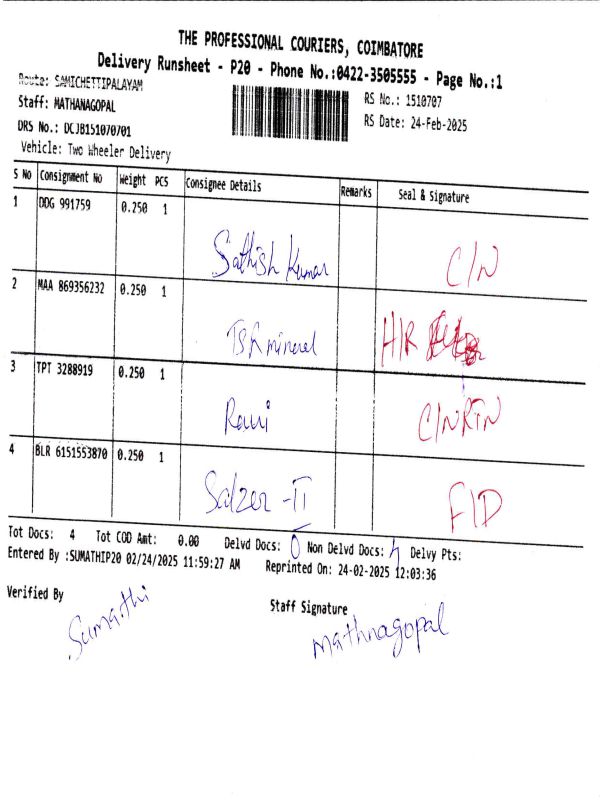 THE PROFESSIONAL COURIERS, COIMBATORE
Delivery Runsheet - P20 - Phone No.:0422-3505555 - Page No.:1
Route: SAMICHETTIPALAYAM
Staff: MATHANAGOPAL
RS No.: 1510707
DRS No.: DCJB151070701
RS Date: 24-Feb-2025
Vehicle: Two Wheeler Delivery
S No Consignment No Weight PCS Consignee Details Remarks Seal & Signature
1 DDG 991759 0.250 1
Sathish Kumar C/N
2 MAA 869356232 0.250 1
TSR mineral H/R
3 TPT 3288919 0.250 1
Ravi C/N RTN
4 BLR 6151553870 0.250 1
Salzer -II F/D
Tot Docs: 4 Tot COD Amt: 0.00 Delvd Docs: 0 Non Delvd Docs: 4 Delvy Pts:
Entered By :SUMATHIP20 02/24/2025 11:59:27 AM Reprinted On: 24-02-2025 12:03:36
Verified By Staff Signature
Sumathi mathnagopal